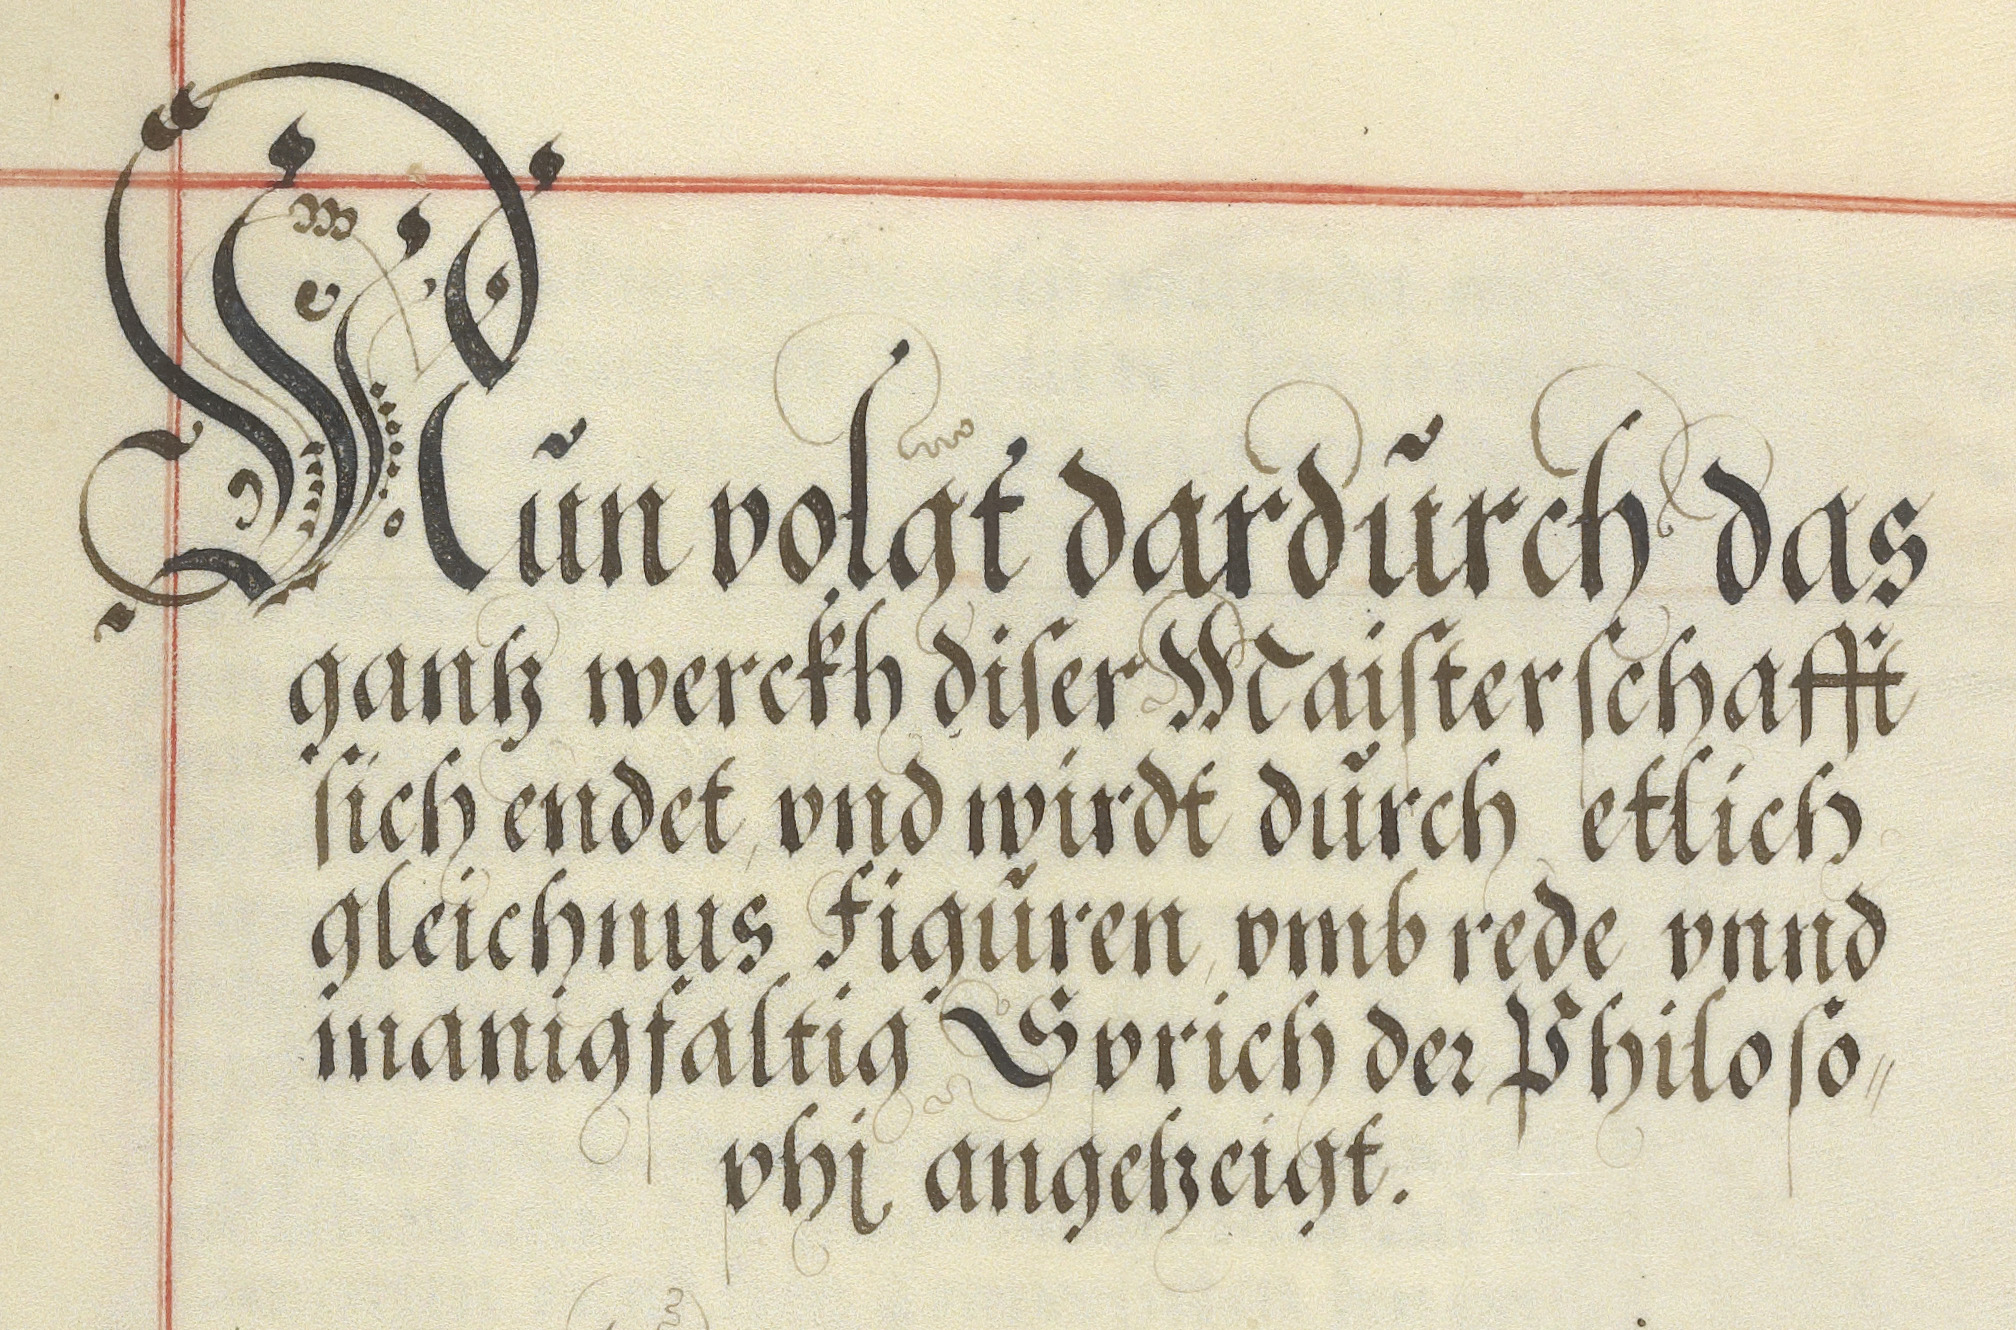 Nun volgt dardurch das
gantz werckh diser Maisterschafft
sich endet, vnd wirdt durch etlich
gleichnus Figuren, vmbrede vnnd
manigfaltig Sprich der Philoso⸗
phj angetzeigt.